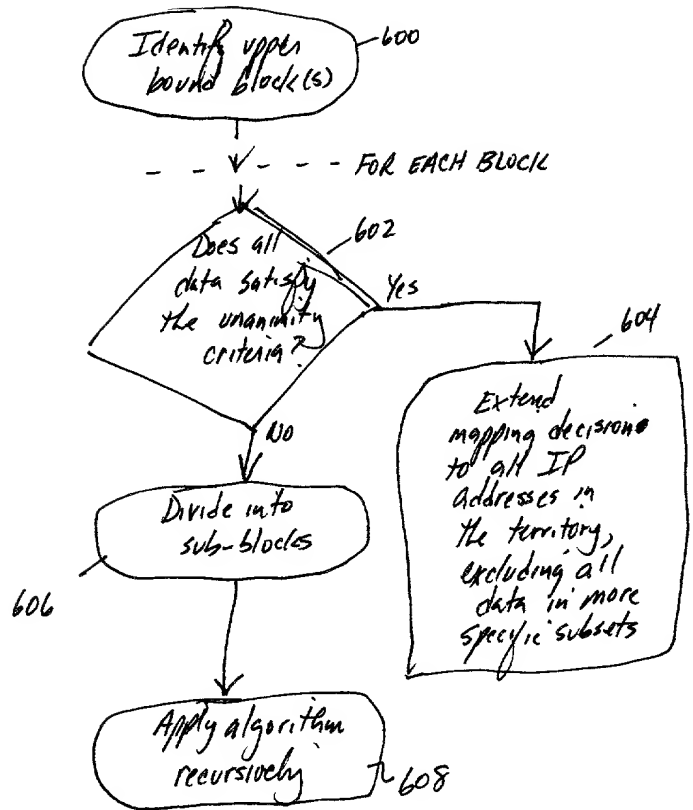 Identify upper
bound block(s)
600
FOR EACH BLOCK
602
Does all
data satisfy
the unanimity
criteria?
Yes
604
Extend
mapping decision
to all IP
addresses in
the territory,
excluding all
data in more
specific subsets
NO
Divide into
sub-blocks
606
Apply algorithm
recursively
608